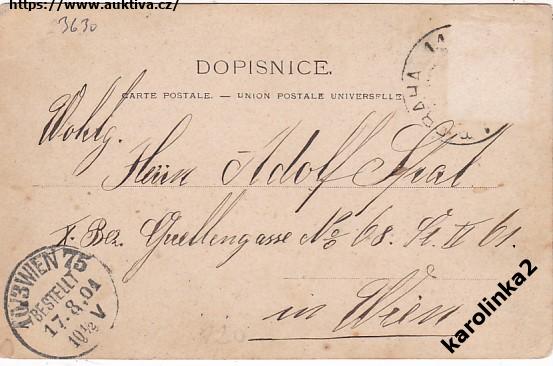 https://www.auktiva.cz/
3630
DOPISNICE.
CARTE POSTALE. — UNION POSTALE UNIVERSELLE
PRAHA 11
Wohlg.
Herrn Adolf Spat
X. Bez. Quellengasse No 68. St. II 61.
in Wien
10/3 WIEN 75
BESTELLT
17.8.01
10½ V
karolinka2